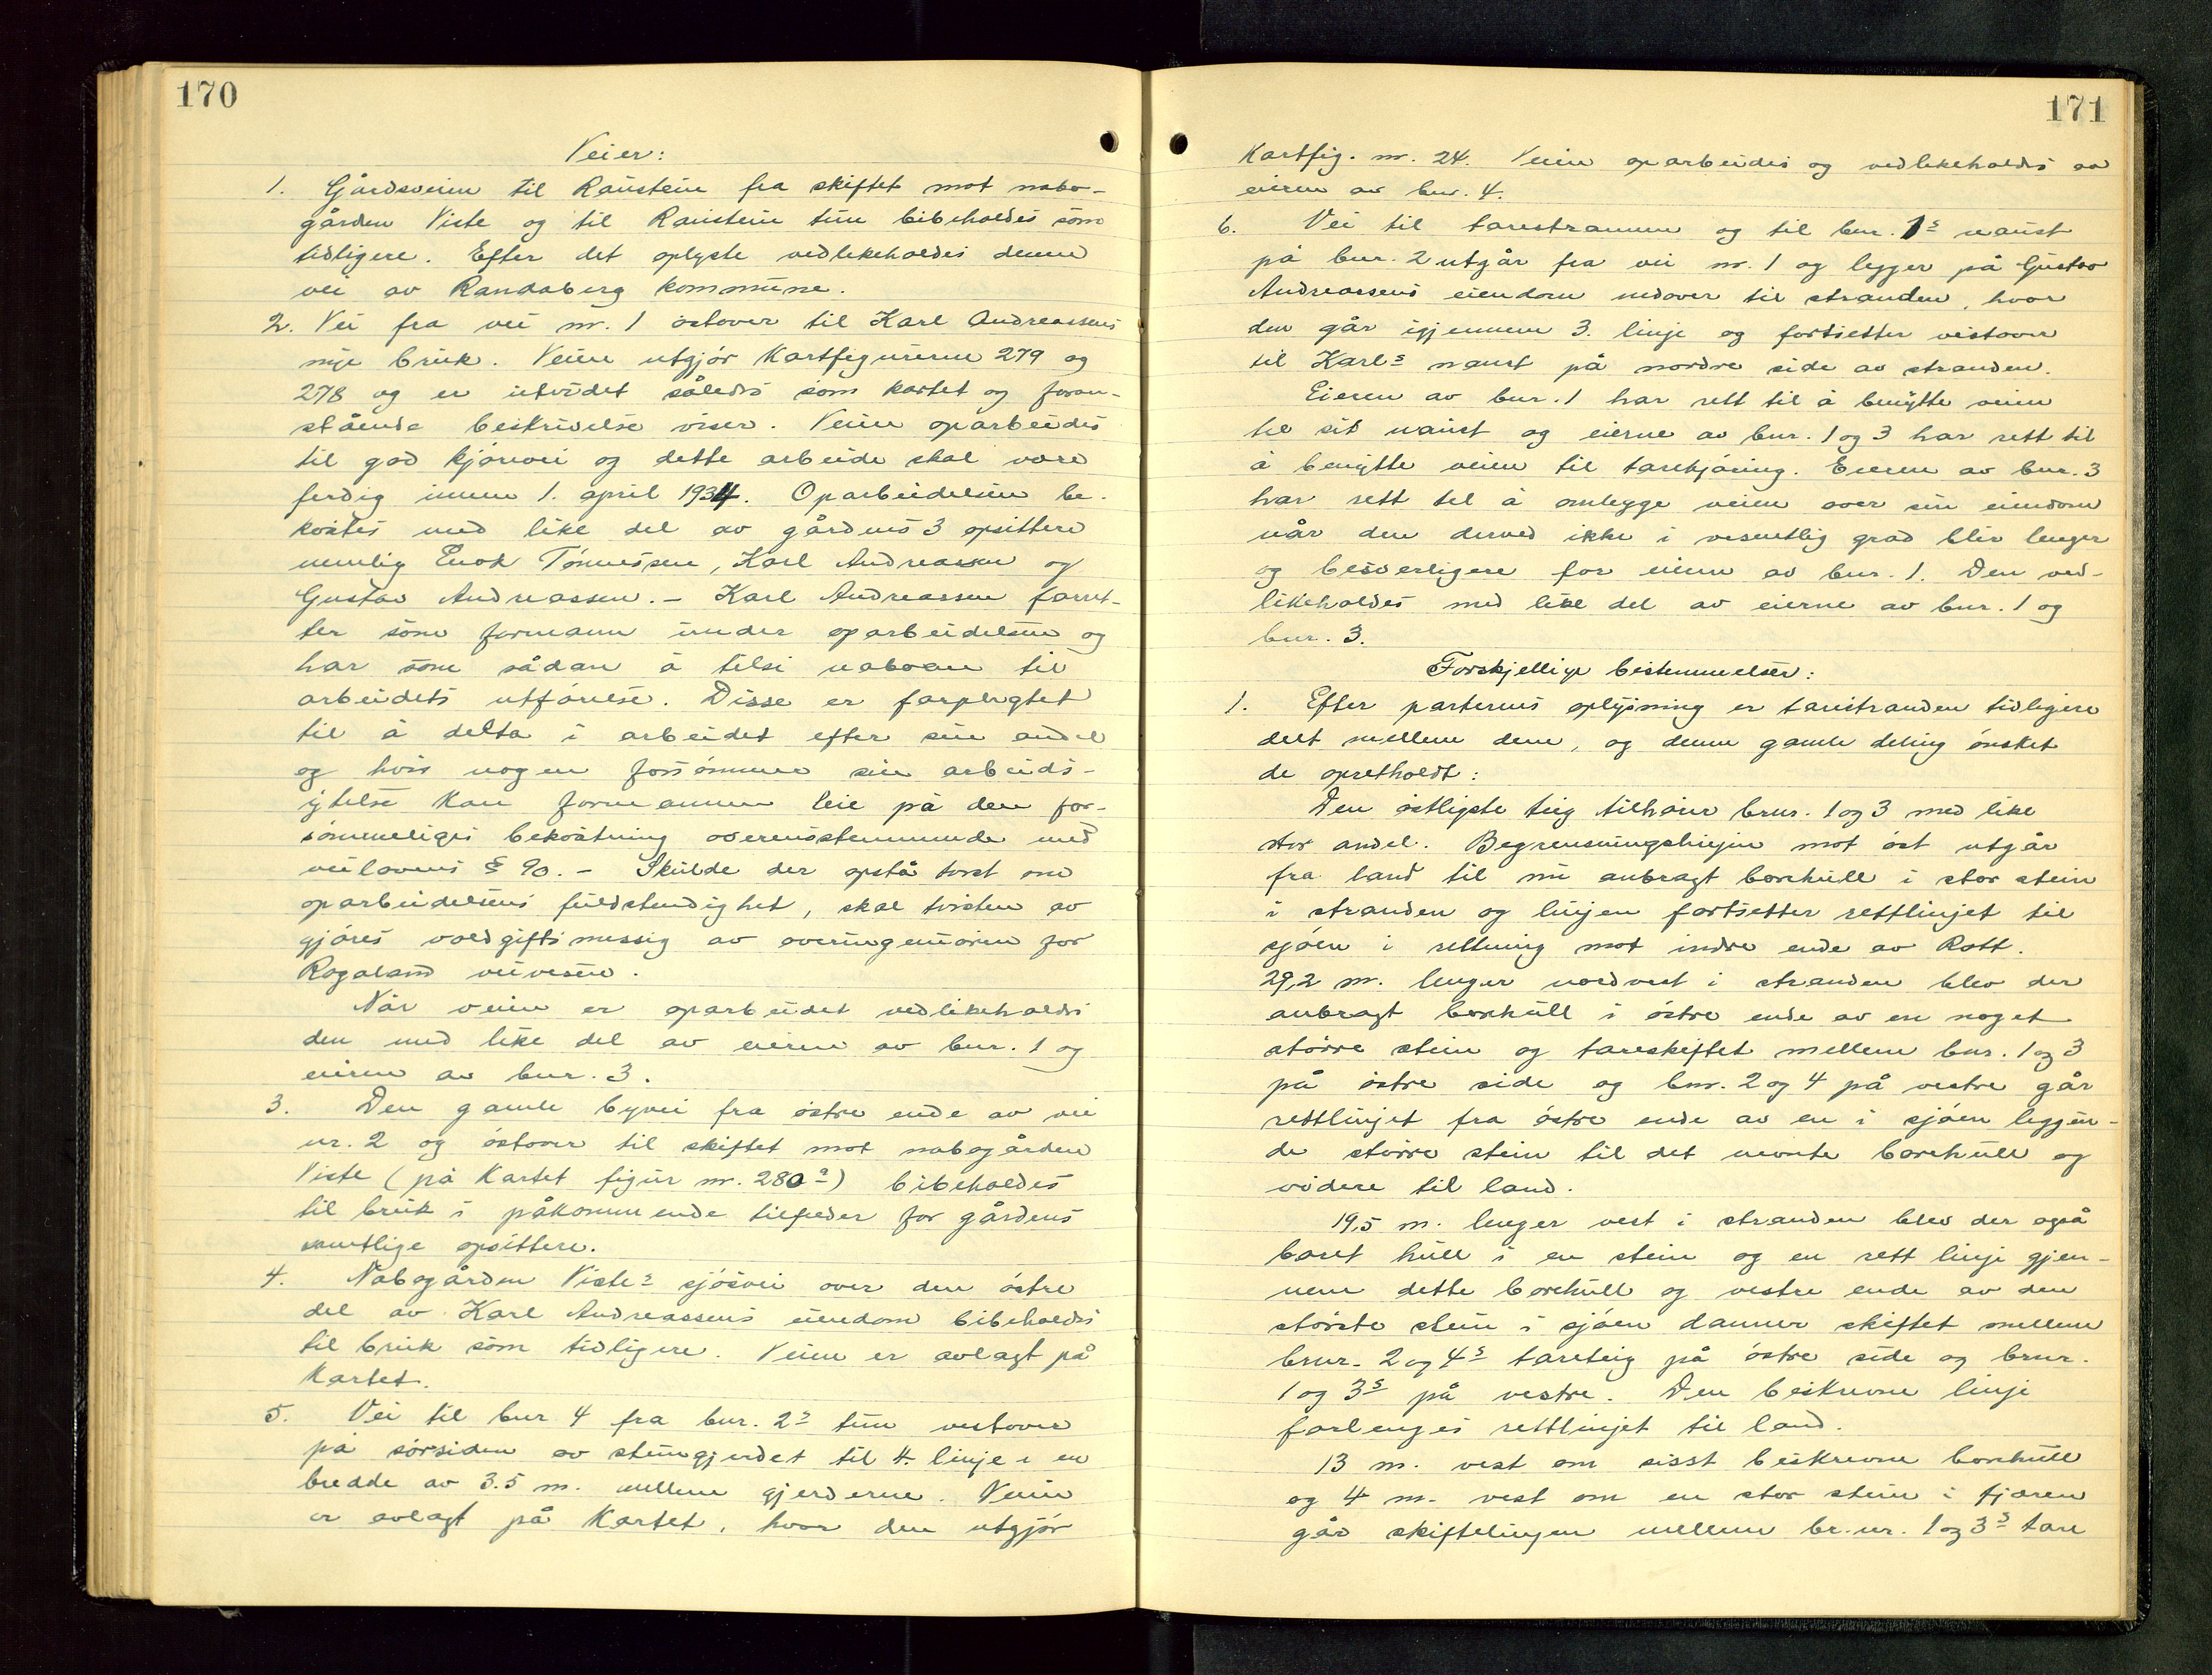 170
Veier:
1. Gårdsveien til Raustein fra skiftet mot nabo-
gården Viste og til Raustein tun bibeholdes som
tidligere. Efter det oplyste vedlikeholdes denne
vei av Randaberg kommune.
2. Vei fra vei nr. 1 østover til Karl Andreassens
nye bruk. Veien utgjør Kartfigurerne 279 og
278 og er utvidet således som kartet og foran-
stående beskrivelse viser. Veien oparbeides
til god kjørevei og dette arbeide skal være
ferdig innen 1. april 1934. Oparbeidelsen be-
kostes med like del av gårdens 3 opsittere
nemlig Enok Tønnessen, Karl Andreassen og
Gustav Andreassen. - Karl Andreassen forret-
ter som formann under oparbeidelsen og
har som sådan å tilsi naboene til
arbeidets utførelse. Disse er forpligtet
til å delta i arbeidet efter sin andel
og hvis nogen forsømmer sin arbeids-
ytelse kan formannen leie på den for-
sømmeliges bekostning overensstemmende med
veilovens § 90. - Skulde der opstå tvist om
oparbeidelsens fuldstendighet, skal tvisten av
gjøres voldgiftsmessig av overingeniøren for
Rogaland veivesen.
Når veien er oparbeidet vedlikeholdes
den med like del av eieren av bnr. 1 og
eieren av bnr. 3.
3. Den gamle byvei fra østre ende av vei
nr. 2 og østover til skiftet mot nabogården
Viste (på Kartet figur nr. 280a) bibeholdes
til bruk i påkommende tilfeder for gårdens
samtlige opsittere.
4. Nabogården Vistes sjøsvei over den østre
del av Karl Andreassens eiendom bibeholdes
til bruk som tidligere. Veien er avlagt på
Kartet.
5. Vei til bnr. 4 fra bnr. 2s tun vestover
på sørsiden av steingjerdet til 4 linje i en
bredde av 3.5 m. mellem gjerderne. Veien
er avlagt på Kartet, hvor den utgjør
171
Kartfig. nr. 24. Veien oparbeides og vedlikeholdes av
eieren av bnr. 4.
6. Vei til tarestrannen og til bnr. 1s naust
på bnr. 2 utgår fra vei nr. 1 og legger på Gustav
Andreassens eiendom nedover til stranden, hvor
den går igjennem 3. linje og fortsetter vestover
til Karls naust på nordre side av stranden.
Eieren av bnr. 1 har rett til å benytte veien
til sit naust og eierne av bnr. 1 og 3 har rett til
å benytte veien til tarekjøring. Eieren av bnr. 3
har rett til å omlegge veien over sin eiendom
når den derved ikke i vesentlig grad blir lenger
og besværligere for eieren av bnr. 1. Den ved-
likeholdes med like del av eierne av bnr. 1 og
bnr. 3.
Forskjellige bestemmelser:
1. Efter parternes oplysning er tarestranden tidligere
delt mellem dem, og denne gamle deling ønsket
de opretholdt:
Den østligste teig tilhører brnr. 1 og 3 med like
stor andel. Begrensningslinjen mot øst utgår
fra land til nu anbragt borehull i stor stein
i stranden og linjen fortsetter rettlinjet til
sjøen i rettning mot indre ende av Rott.
29,2 m. lenger nordvest i stranden blev der
anbragt borehull i østre ende av en noget
større stein og tareskiftet mellem bnr. 1 og 3
på østre side og bnr. 2 og 4 på vestre går
rettlinjet fra østre ende av en i sjøen leggen-
de større stein til det nevnte borehull og
videre til land.
19,5 m. lenger vest i stranden blev der også
boret hull i en stein og en rett linje gjen-
nem dette borehull og vestre ende av den
største stein i sjøen danner skiftet mellem
brnr. 2 og 4s tareteig på østre side og brnr.
1 og 3s på vestre. Den beskrevne linje
forlenges rettlinjet til land.
13 m. vest om sisst beskrevne borehull
og 4 m. vest om en stor stein i fjæren
går skiftelinjen mellem br.nr. 1 og 3s tare